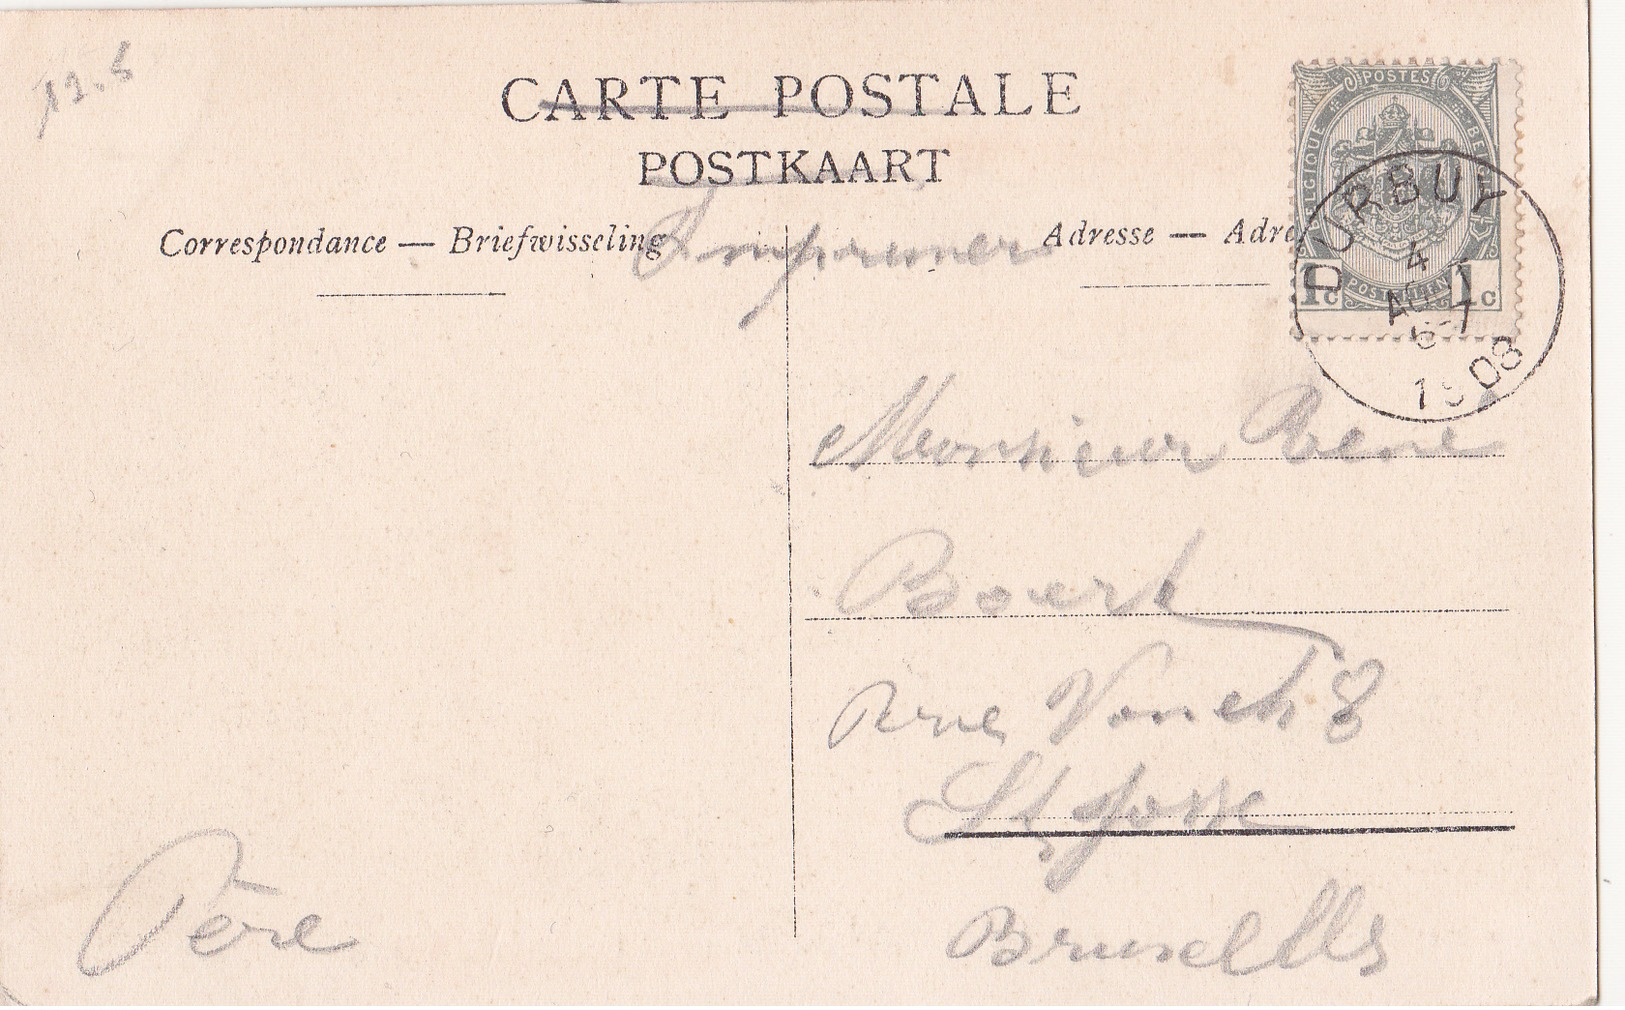 12.8
CARTE POSTALE
POSTKAART
Correspondance — Briefwisseling
Imprimer
Adresse — Adre
POSTES
BELGIQUE
BELGIË
1c POSTERIJEN 1c
DURBUY
4
AOUT
6-7
1908
Monsieur René
Boert
Rue Vonck 8
St Josse
Bruxelles
Père